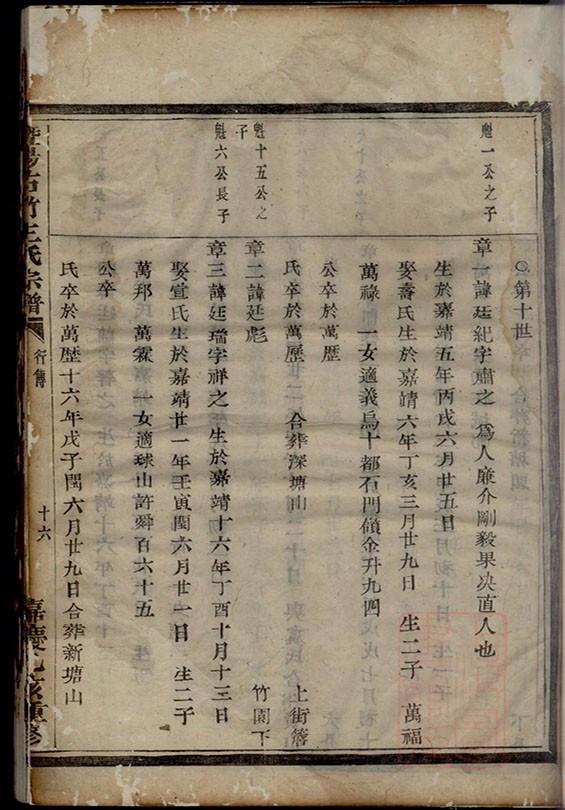 ○第十世
魁一公之子
章一諱廷紀字肅之 為人廉介剛毅果決直人也
生於嘉靖五年丙戌六月廿五日
娶壽氏生於嘉靖六年丁亥三月廿九日 生二子 萬福
萬祿 一女適義烏十都石門傾金升九四
公卒於萬歷
氏卒於萬歷 合葬深塘山 上街簷
魁十五公之子
章二諱廷彪 竹園下
魁六公長子
章三諱廷瑞字祥之 生於嘉靖十六年丁酉十月十三日
娶宣氏生於嘉靖廿一年壬寅閏六月廿一日 生二子
萬邦 萬霖 一女適球山許舜百六十五
公卒
氏卒於萬歷十六年戊子閏六月廿九日合葬新塘山
暨陽古竹王氏宗譜
行傳
十六
嘉慶乙亥重修